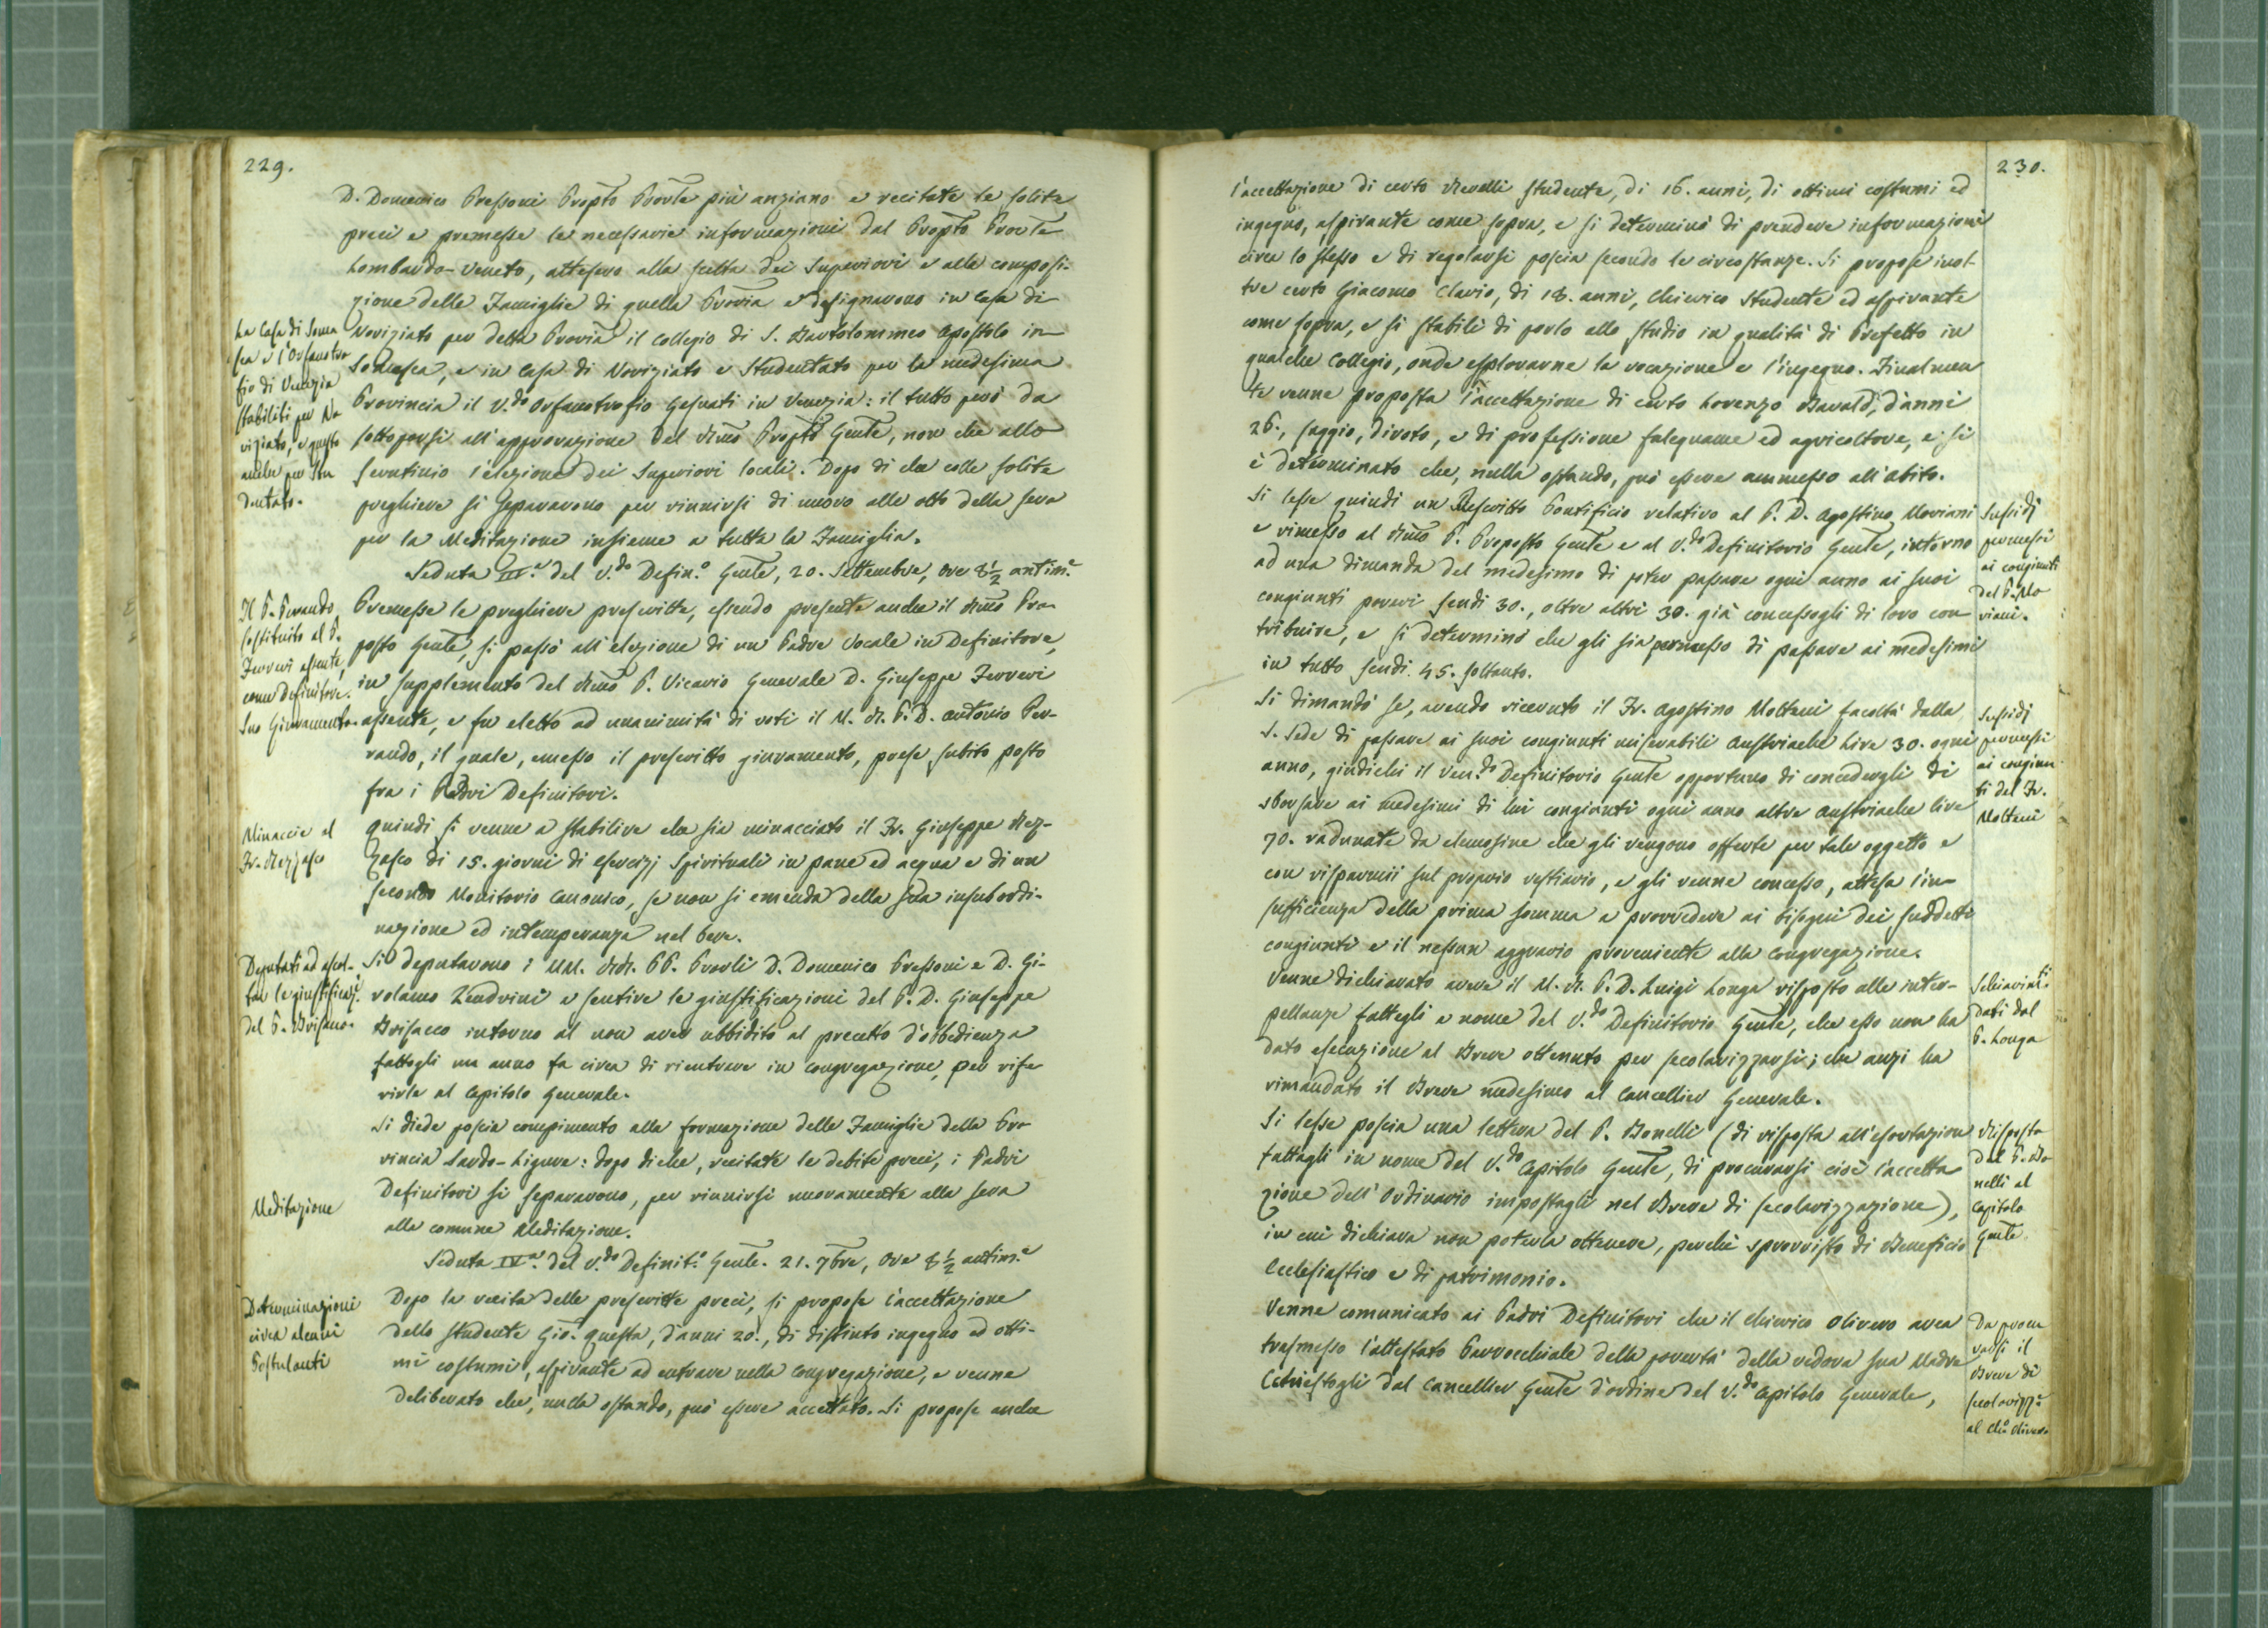 229.
D. Domenico Pressoni Propto Provle più anziano e recitate le solite
preci e premesse le necessarie informazioni dal Propto Provle
Lombardo-Veneto, attesero alla scelta dei Superiori e alla composi-
zione delle Famiglie di quella Provia e designarono in Casa di
Noviziato per detta Provia il Collegio di S. Bartolommeo Apostolo in
Somasca, e in Casa di Noviziato e Studentato per la medesima
Provincia il V.do Orfanotrofio Gesuati in Venezia: il tutto però da
sottoporsi all'approvazione del Rmo Propto Genle, non che allo
scrutinio l'elezione dei Superiori locali. Dopo di che colle solite
preghiere si separarono per riunirsi di nuovo alle otto della sera
per la Meditazione insieme a tutta la Famiglia.
La Casa di Soma
sca e l'Orfanotro
fio di Venezia
stabiliti per No
viziato, e questo
anche per Stu
dentato.
Seduta III.a del V.do Defin.o Genle, 20. Settembre, ore 8½ antim.e
Premesse le preghiere prescritte, essendo presente anche il Rmo Pro-
posto Genle, si passò all'elezione di un Padre Vocale in Definitore,
in supplemento del Rmo P. Vicario Generale D. Giuseppe Ferreri
assente, e fu eletto ad unanimità di voti il M. R. P. D. Antonio Per-
rando, il quale, emesso il prescritto giuramento, prese subito posto
fra i Padri Definitori.
Il P. Perando
sostituito al P.
Ferreri assente,
come Definitore.
Suo Giuramento.
Quindi si venne a stabilire che sia minacciato il Fr. Giuseppe Rez-
zasco di 15. giorni di esercizj spirituali in pane ed acqua e di un
secondo Monitorio Canonico, se non si emenda della sua insubordi-
nazione ed intemperanza nel bere.
Minaccie al
Fr. Rezzasco
Si deputarono i MM. RR. PP. Provli D. Domenico Pressoni e D. Gi-
rolamo Zendrini a sentire le giustificazioni del P. D. Giuseppe
Brisacco intorno al non aver ubbidito al precetto d'obbedienza
fattogli un anno fa circa di rientrare in Congregazione, per rife
rirle al Capitolo Generale.
Deputati ad ascol-
tar le giustificaz.i
del P.
Si diede poscia compimento alla formazione delle Famiglie della Pro
vincia Sardo-Ligure: dopo di che, recitate le debite preci, i Padri
Definitori si separarono, per riunirsi nuovamente alla sera
alla comune Meditazione.
Meditazione
Seduta IV.a del V.do Definit.o Genle. 21. 7bre, ore 8½ antim.e
Dopo la recita delle prescritte preci, si propose l'accettazione
dello studente Gio. Questa, d'anni 20., di distinto ingegno ed otti-
mi costumi, aspirante ad entrare nella Congregazione, e venne
deliberato che, nulla ostando, può essere accettato. Si propose anche
Determinazioni
circa alcuni
Postulanti
230.
l'accettazione di certo Revelli studente, di 16. anni, di ottimi costumi ed
ingegno, aspirante come sopra, e si determinò di prendere informazioni
circa lo stesso e di regolarsi poscia secondo le circostanze. Si propose inol-
tre certo Giacomo Clavio, di 18. anni, Chierico Studente ed aspirante
come sopra, e si stabilì di porlo allo studio in qualità di Prefetto in
qualche Collegio, onde esplorarne la vocazione e l'ingegno. Finalmen
te venne proposta l'accettazione di certo Lorenzo Bavaldi, d'anni
26., saggio, divoto, e di professione falegname ed agricoltore, e si
è determinato che, nulla ostando, può essere ammesso all'abito.
Si lesse quindi un Rescritto Pontificio relativo al P. D. Agostino Moriani
e rimesso al Rmo P. Proposto Genle e al V.do Definitorio Genle, intorno
ad una dimanda del medesimo di poter passare ogni anno ai suoi
congiunti poveri scudi 30., oltre altri 30. già concessogli di loro con
tribuire, e si determinò che gli sia permesso di passare ai medesimi
in tutto scudi 45. soltanto.
Sussidj
permessi
ai congiunti
del P. Mo
riani.
Si dimandò se, avendo ricevuto il Fr. Agostino Molteni facoltà dalla
S. Sede di passare ai suoi congiunti miserabili Austriache Lire 30. ogni
anno, giudichi il Ven.do Definitorio Genle opportuno di concedergli di
sborsare ai medesimi di lui congiunti ogni anno altre Austriache lire
70. radunate da elemosine che gli vengono offerte per tale oggetto e
con risparmii sul proprio vestiario, e gli venne concesso, attesa l'in-
sufficienza della prima somma a provvedere ai bisogni dei suddetti
congiunti e il nessun aggravio proveniente alla Congregazione.
Sussidj
permessi
ai congiun
ti del Fr.
Molteni
Venne dichiarato avere il M. R. P. D. Luigi Longa risposto alle inter-
pellanze fattegli a nome del V.do Definitorio Genle, che esso non ha
dato esecuzione al Breve ottenuto per secolarizzarsi; che anzi ha
rimandato il Breve medesimo al Cancellier Generale.
Schiarim.ti
dati dal
P. Longa
Si lesse poscia una lettera del P. Bonelli (di risposta all'esortazione
fattagli in nome del V.do Capitolo Genle, di procurarsi cioè l'accetta
zione dell'Ordinario impostagli nel Breve di secolarizzazione),
in cui dichiara non poterla ottenere, perchè sprovvisto di Beneficio
Ecclesiastico e di patrimonio.
Risposta
del P. Bo
nelli al
Capitolo
Genle.
Venne comunicato ai Padri Definitori che il Chierico Olivero avea
trasmesso l'attestato Parrocchiale della povertà della vedova sua Madre
dal Cancellier Genle d'ordine del V.do Capitolo Generale,
Da procu
rarsi il
Breve di
secolarizz.e
al Ch.o Olivero